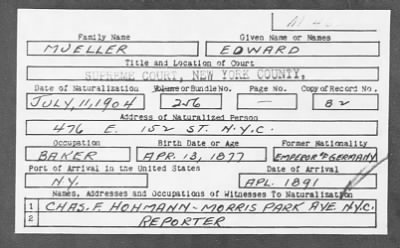 Family Name Given Name or Names
MUELLER EDWARD
Title and Location of Court
SUPREME COURT, NEW YORK COUNTY,
Date of Naturalization Volume or Bundle No. Page No. Copy of Record No.
JULY, 11, 1904 256 — 82
Address of Naturalized Person
476 E. 152 ST. N.Y.C.
Occupation Birth Date or Age Former Nationality
BAKER APR. 13, 1877 EMPEROR OF GERMANY
Port of Arrival in the United States Date of Arrival
N.Y. APL. 1891
Names, Addresses and Occupations of Witnesses To Naturalization
1 CHAS. F. HOHMANN - MORRIS PARK AVE. N.Y.C.
2 REPORTER